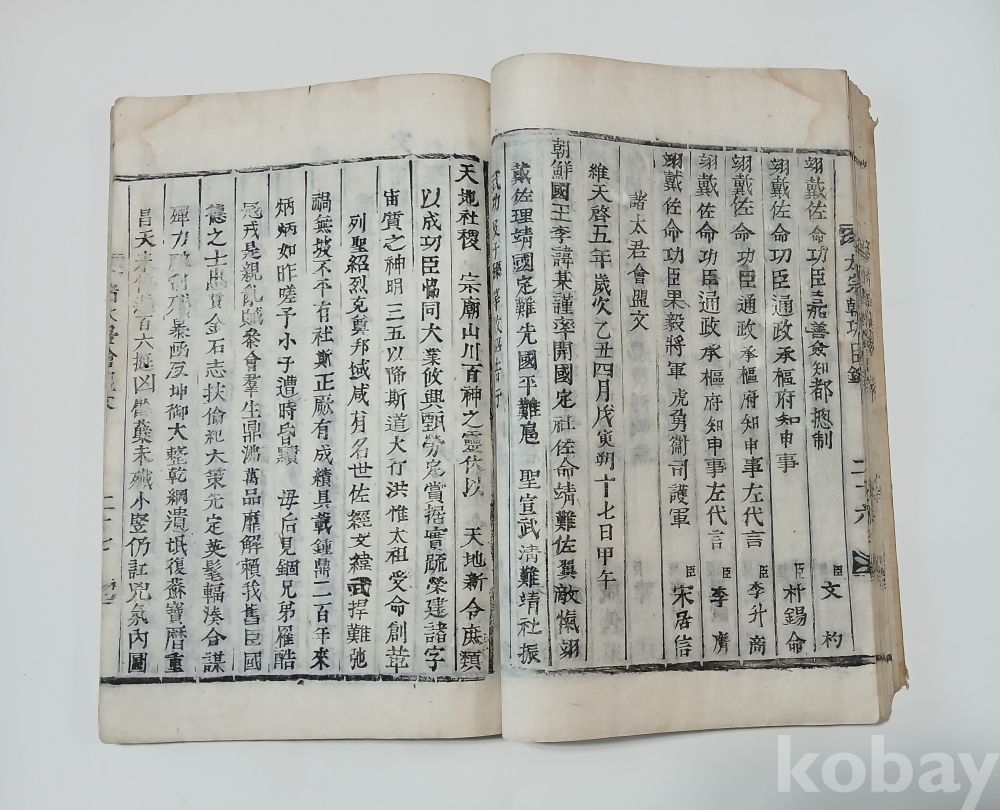 翊戴佐命功臣嘉善僉知都摠制 臣 文 杓
翊戴佐命功臣通政承樞府知申事 臣 朴錫命
翊戴佐命功臣通政承樞府知申事左代言 臣 李升商
翊戴佐命功臣通政承樞府知申事左代言 臣 李膺
翊戴佐命功臣果毅將軍 虎勇衛司護軍 臣 宋居信
諸太君會盟文
維天啓五年歲次乙丑四月戊寅朔十七日甲午
朝鮮國王李諱某謹率開國定社佐命靖難佐翼敵愾翊
戴佐理靖國定難光國平難扈 聖宣武清難靖社振
天地社稷 宗廟山川百神之靈伏以 天地新令庶類
以成功臣恊同大業攸興甄勞定賞据實疏榮建諸宇
宙質之神明三五以降斯道大行洪惟太祖受命創業
列聖紹烈克奠邦域咸有名世佐經文緯武捍難弛
禍無坡不平有社斯正厥有成績具載鍾鼎二百年來
炳炳如昨嗟予小子遭時昏 母后見錮兄弟罹酷
戎是親乱賊 會羣生鼎沸萬品靡解賴我舊臣國
之士忠貫金石志扶倫紀大策先定英髦輻湊合謀
力 坤御大整乾綱遺氓復蘇寶曆重
昌天 百六挻凶 孽未殲小竪仍訌咒氛內圖
kobay